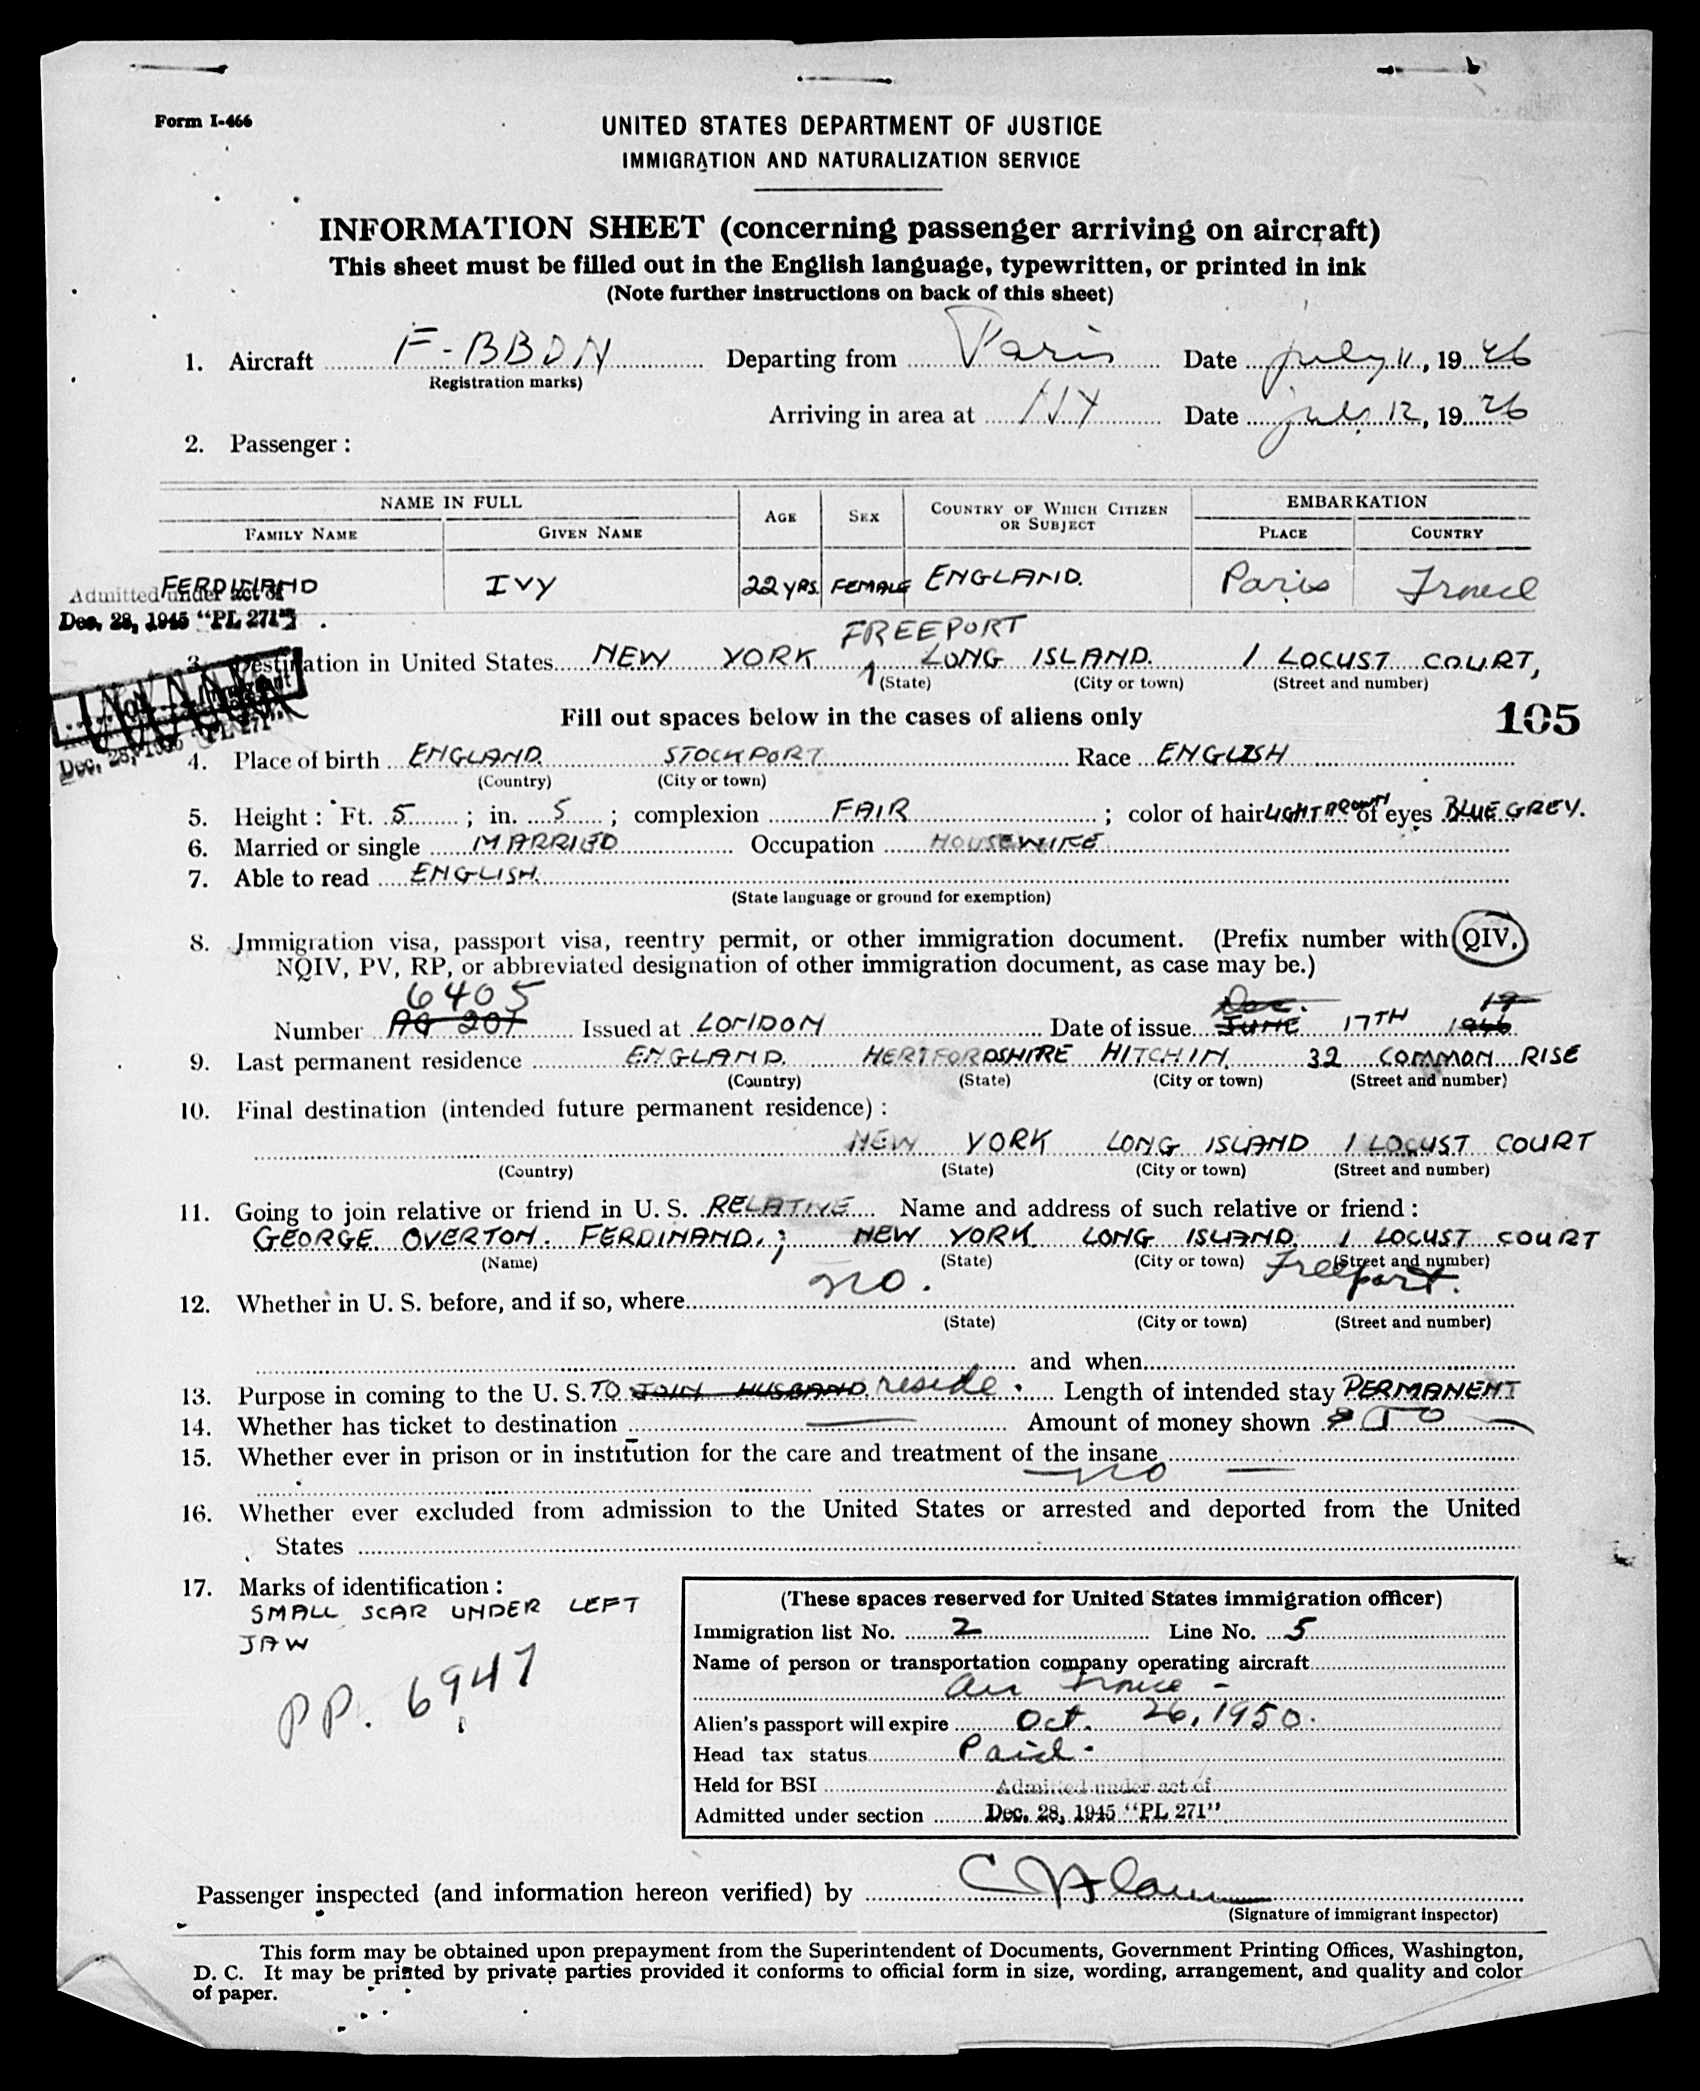 Form I-466
UNITED STATES DEPARTMENT OF JUSTICE
IMMIGRATION AND NATURALIZATION SERVICE
INFORMATION SHEET (concerning passenger arriving on aircraft)
This sheet must be filled out in the English language, typewritten, or printed in ink
(Note further instructions on back of this sheet)
1. Aircraft F-BBDN Departing from Paris Date July 11, 1946
(Registration marks)
Arriving in area at NY Date July 12, 1946
2. Passenger:
NAME IN FULL AGE SEX COUNTRY OF WHICH CITIZEN OR SUBJECT EMBARKATION
FAMILY NAME GIVEN NAME PLACE COUNTRY
FERDINAND IVY 22 YRS. FEMALE ENGLAND. Paris France
Admitted under act of
Dec. 28, 1945 "PL 271"
FREEPORT
3. Destination in United States NEW YORK LONG ISLAND. 1 LOCUST COURT,
(State) (City or town) (Street and number)
Fill out spaces below in the cases of aliens only
105
Dec. 28, 1945 "PL 271"
4. Place of birth ENGLAND. STOCKPORT Race ENGLISH
(Country) (City or town)
5. Height: Ft. 5; in. 5; complexion FAIR; color of hair LIGHT BROWN of eyes BLUE GREY.
6. Married or single MARRIED Occupation HOUSEWIFE
7. Able to read ENGLISH.
(State language or ground for exemption)
8. Immigration visa, passport visa, reentry permit, or other immigration document. (Prefix number with QIV,
NQIV, PV, RP, or abbreviated designation of other immigration document, as case may be.)
6405 Dec. 19
Number AG 207 Issued at LONDON Date of issue JUNE 17TH 1946
9. Last permanent residence ENGLAND. HERTFORDSHIRE HITCHIN. 32 COMMON RISE
(Country) (State) (City or town) (Street and number)
10. Final destination (intended future permanent residence):
NEW YORK LONG ISLAND 1 LOCUST COURT
(Country) (State) (City or town) (Street and number)
11. Going to join relative or friend in U. S. RELATIVE Name and address of such relative or friend:
GEORGE OVERTON. FERDINAND.; NEW YORK LONG ISLAND. 1 LOCUST COURT
(Name) (State) (City or town) (Street and number)
Freeport.
12. Whether in U. S. before, and if so, where no.
(State) (City or town) (Street and number)
and when
13. Purpose in coming to the U. S. TO JOIN HUSBAND. reside. Length of intended stay PERMANENT
14. Whether has ticket to destination Amount of money shown
15. Whether ever in prison or in institution for the care and treatment of the insane
no
16. Whether ever excluded from admission to the United States or arrested and deported from the United
States
17. Marks of identification:
SMALL SCAR UNDER LEFT
JAW
PP. 6947
(These spaces reserved for United States immigration officer)
Immigration list No. 2 Line No. 5
Name of person or transportation company operating aircraft
Air France -
Alien's passport will expire Oct. 26, 1950.
Head tax status Paid.
Held for BSI
Admitted under act of
Admitted under section Dec. 28, 1945 "PL 271"
Passenger inspected (and information hereon verified) by
(Signature of immigrant inspector)
This form may be obtained upon prepayment from the Superintendent of Documents, Government Printing Offices, Washington,
D. C. It may be printed by private parties provided it conforms to official form in size, wording, arrangement, and quality and color
of paper.